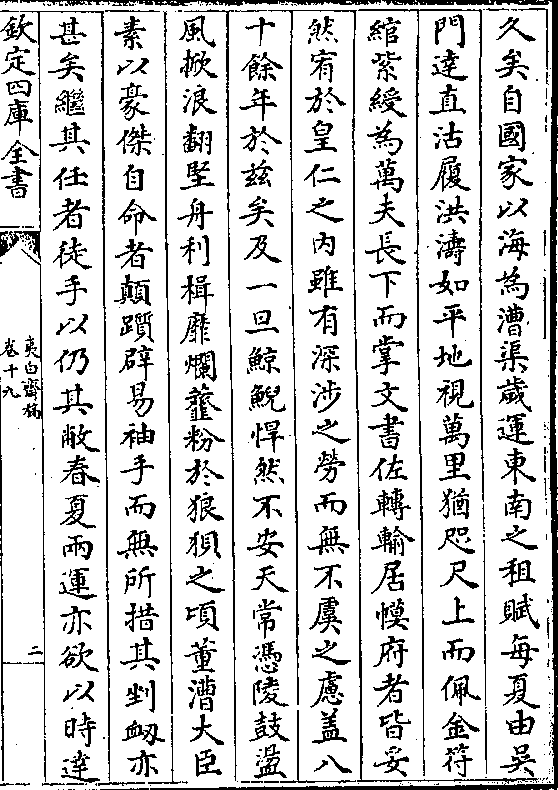 久矣自國家以海為漕渠歲運東南之租賦每夏由吳
門達直沽履洪濤如平地視萬里猶咫尺上而佩金符
綰紫綬為萬夫長下而掌文書佐轉輸居幙府者皆妥
然宥於皇仁之内雖有深涉之勞而無不虞之慮盖八
十餘年於兹矣及一旦鯨鯢悍然不安天常憑陵鼓盪
風掀浪翻堅舟利楫靡爛虀粉於狼狽之頃董漕大臣
素以豪傑自命者顛躓辟易袖手而無所措其刲衂亦
甚矣繼其任者徒手以仍其敝春夏兩運亦欲以時達
欽定四庫全書
夷白齋稿
卷十九
二